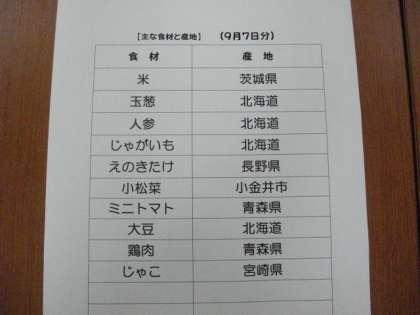 【主な食材と産地】 (9月7日分)
食 材 産 地
米 茨城県
玉葱 北海道
人参 北海道
じゃがいも 北海道
えのきたけ 長野県
小松菜 小金井市
ミニトマト 青森県
大豆 北海道
鶏肉 青森県
じゃこ 宮崎県